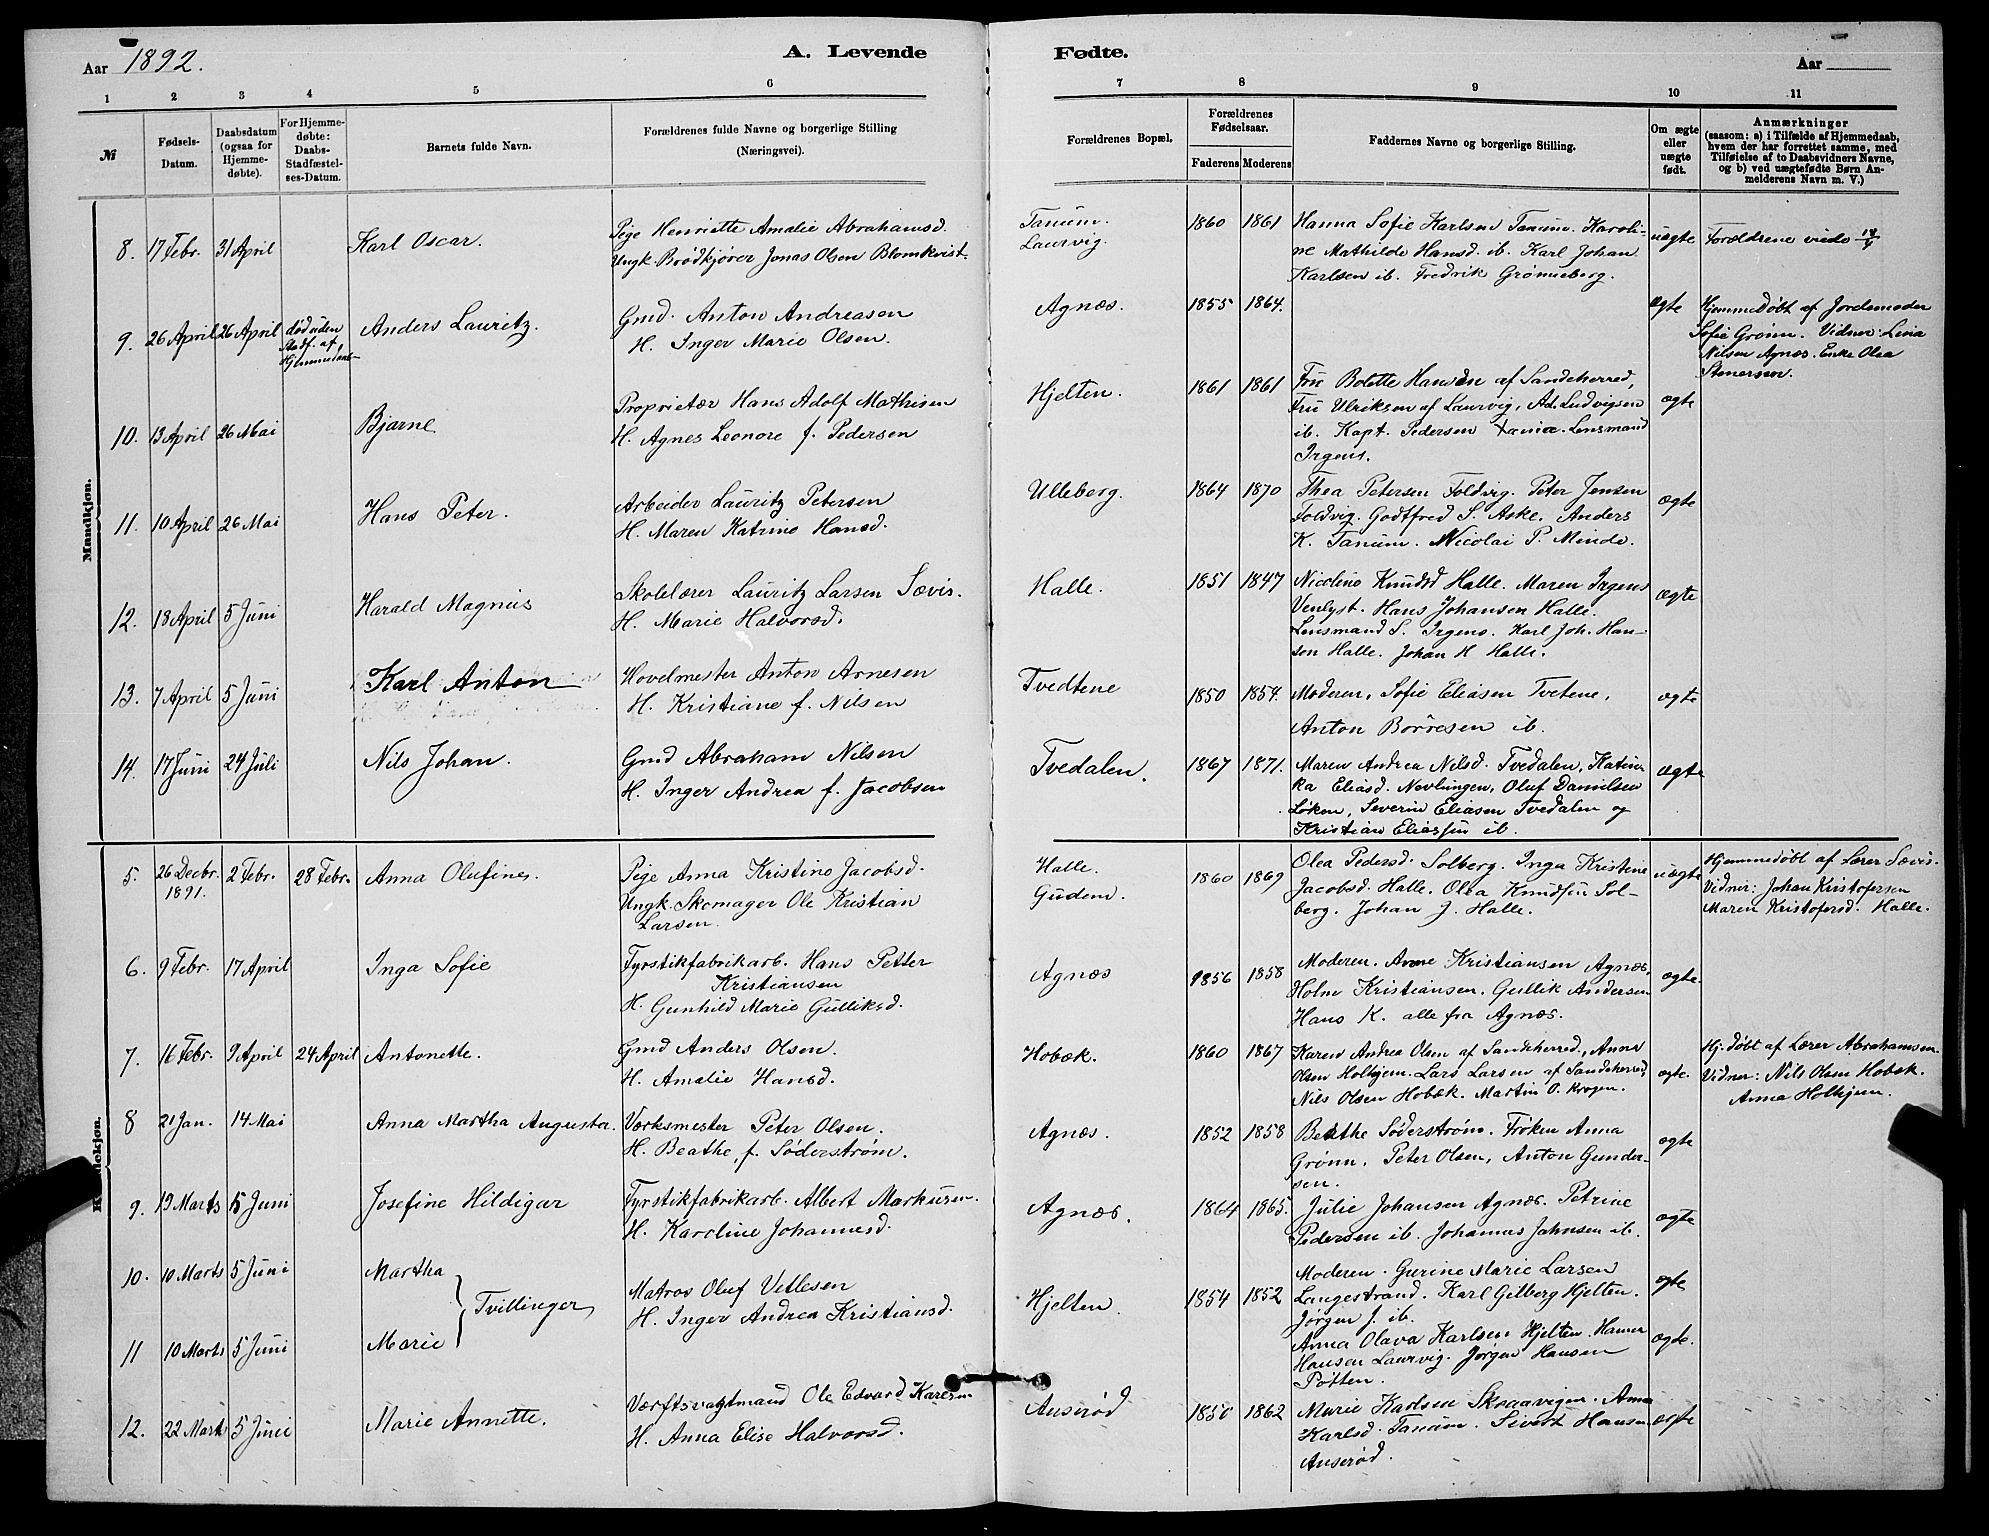 Aar 1892.
A. Levende
Fødte.
Aar
1 2 3 4 5 6 7 8 9 10 11
№
Fødsels-
Datum.
Daabsdatum
(ogsaa for
Hjemme-
døbte).
For Hjemme-
døbte:
Daabs-
Stadfæstel-
ses-Datum.
Barnets fulde Navn.
Forældrenes fulde Navne og borgerlige Stilling
(Næringsvei).
Forældrenes Bopæl.
Forældrenes
Fødselsaar.
Faderens Moderens
Faddernes Navne og borgerlige Stilling.
Om ægte
eller
uægte
født.
Anmærkninger
(saasom: a) i Tilfælde af Hjemmedaab,
hvem der har forrettet samme, med
Tilføielse af to Daabsvidners Navne,
og b) ved uægtefødte Børn An-
melderens Navn m. V.)
Mandkjøn.
8. 17 Febr. 31 April Karl Oscar.
Pige Henriette Amalie Abrahamsd.
Ungk. Brødkjører Jonas Olsen Blomkvist.
Tanum.
Laurvig.
1860 1861
Hanna Sofie Karlsen Tanum. Karoli-
ne Mathilde Hansd. ib. Karl Johan
Karlsen ib. Fredrik Grønneberg.
uægte
Forældrene viede
9. 26 April 26 April
død uden
Stadf. af
Hjemmedaab
Anders Lauritz.
Gmd. Anton Andreasen
H. Inger Marie Olsen.
Agnæs. 1855 1864. ægte
Hjemmedøbt af Jordemoder
Sofie Grønn. Vidner Lina
Nilsen Agnæs. Enke Olea
Stenersen.
10. 13 April 26 Mai Bjarne
Proprietær Hans Adolf Mathisen
H. Agnes Leonore f. Pedersen
Hjelten. 1861 1861
Fru Bolette Hansen af Sandeherred,
Fru Ulriksen af Laurvig, Ad. Ludvigsen
ib. Kapt. Pedersen Lensmand
Irgens.
ægte
11. 10 April 26 Mai Hans Peter.
Arbeider Lauritz Petersen
H. Maren Katrine Hansd.
Ulleberg. 1864 1870
Thea Petersen Foldvig. Peter Jensen
Foldvig. Godtfred S. Aske. Anders
K. Tanum. Nicolai P. Minde.
ægte
12. 18 April 5 Juni Harald Magnus
Skolelærer Lauritz Larsen Sævis.
H. Marie Halvorsd.
Halle. 1851 1847
Nicoline Knudsd Halle. Maren Irgens
Venlyst. Hans Johansen Halle.
Lensmand S. Irgens. Karl Joh. Han-
sen Halle. Johan H Halle.
ægte
13. 7 April 5 Juni Karl Anton
Hovelmester Anton Arnesen
H. Kristiane f. Nilsen
Tvedtene 1850 1854.
Moderen, Sofie Eliasen Tvetene,
Anton Borresen ib.
ægte
14. 17 Juni 24 Juli Nils Johan.
Gmd Abraham Nilsen
H. Inger Andrea f. Jacobsen
Tvedalen. 1867 1871.
Maren Andrea Nilsd. Tvedalen, Katin-
ka Eliasd. Nevlungen, Oluf Danielsen
Løken, Severin Eliasen Tvedalen og
Kristian Eliassen ib.
ægte
Kvindekjøn.
5. 26 Decbr. 2 Febr. 28 Febr. Anna Olufine.
1891.
Pige Anna Kristine Jacobsd.
Ungk. Skomager Ole Kristian
Larsen.
Halle.
Gudem.
1860 1869
Olea Pedersd. Solberg. Inga Kristine
Jacobsd. Halle. Olea Knudsen Sol-
berg. Johan J. Halle.
uægte
Hjemmedøbt af Lærer Sævis.
Vidner: Johan Kristofersen
Maren Kristofersd. Halle.
6. 9 Febr. 17 April Inga Sofie
Fyrstikfabrikarb. Hans Petter
Kristiansen
H. Gunhild Marie Gulliksd.
Agnæs 1856 1858
Moderen. Anne Kristiansen Agnæs,
Holm Kristiansen. Gullik Andersen
Hans K. alle fra Agnæs.
ægte.
7. 16 Febr. 9 April 24 April Antonette.
Gmd Anders Olsen.
H. Amalie Hansd.
Hobæk. 1860 1867
Karen Andrea Olsen af Sandeherred, Anna
Olsen Holhjem. Lars Larsen af Sandeherred,
Nils Olsen Hobæk. Martin O. Krogen.
ægte.
Hj. døbt af Lærer Abrahamsen.
Vidner: Nils Olsen Hobæk.
Anna Holhjem.
8 21 Jan. 14 Mai Anna Martha Augusta.
Værksmester Peter Olsen.
H. Beathe, f. Söderstrøm.
Agnæs. 1852 1858
Beathe Söderstrøm. Frøken Anna
Grønn, Peter Olsen, Anton Gunder-
sen.
ægte
9. 19 Marts 5 Juni Josefine Hildigar
Fyrstikfabrikarb. Albert Markusen.
H. Karoline Johannesd.
Agnæs. 1864 1865.
Julie Johansen Agnæs. Petrine
Pedersen ib. Johannes Jahnsen ib.
ægte
10. 10 Marts 5 Juni Martha
Tvillinger
11 10 Marts 5 Juni Marie
Matros Oluf Vetlesen
H. Inger Andrea Kristiansd.
Hjelten. 1854 1852
Moderen. Gurine Marie Larsen
Langestrand. Karl Gilberg Hjelten.
Jørgen J. ib.
ægte
Anna Olava Karlsen Hjelten.
Hansen Laurvig. Jørgen Hansen
Pøtten.
ægte.
12. 22 Marts 5 Juni Marie Annette.
Værftsvagtmand Ole Edvard Karlsen
H. Anna Elise Halvorsd.
Anserød 1850 1862
Marie Karlsen Skraavigen. Anna
Karlsd. Tanum. Sivert Hansen
Anserød.
ægte